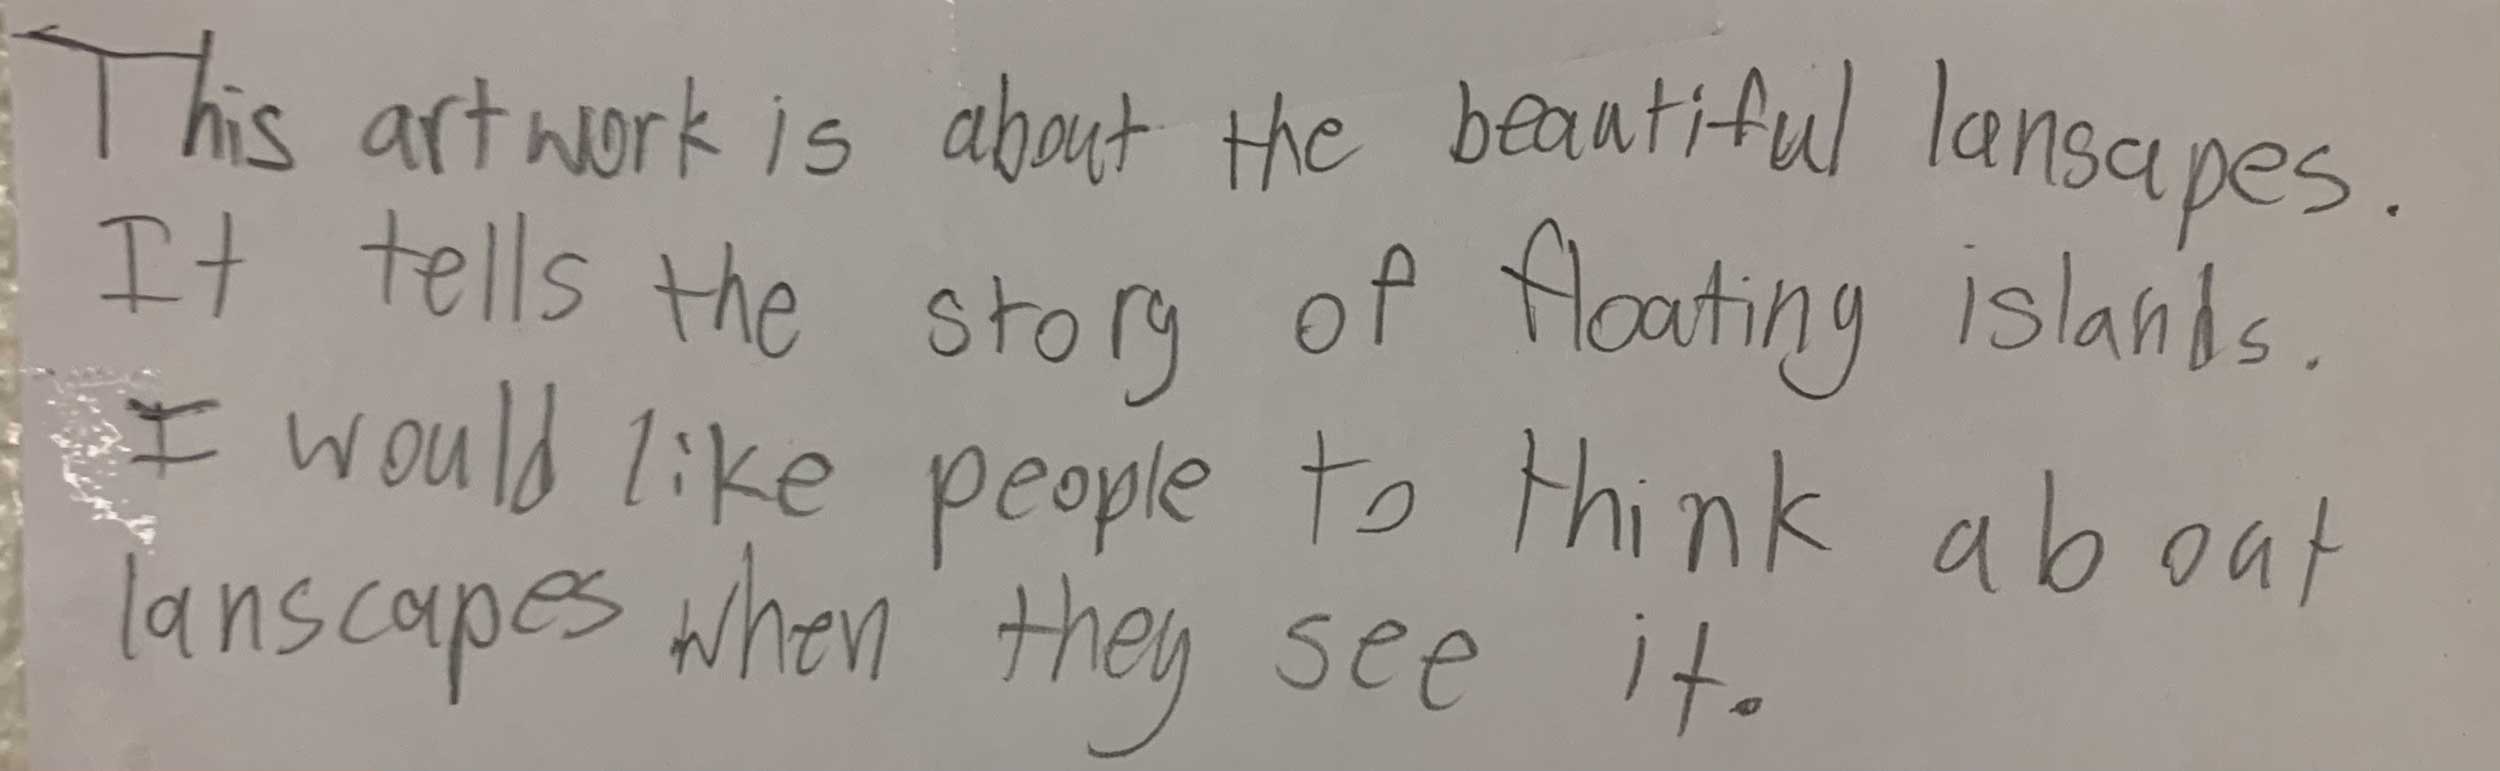 This artwork is about the beautiful lansapes.
It tells the story of floating islands.
I would like people to think about
lanscapes when they see it.